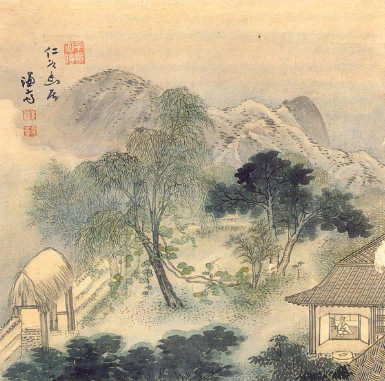 仁谷幽居
謙齋